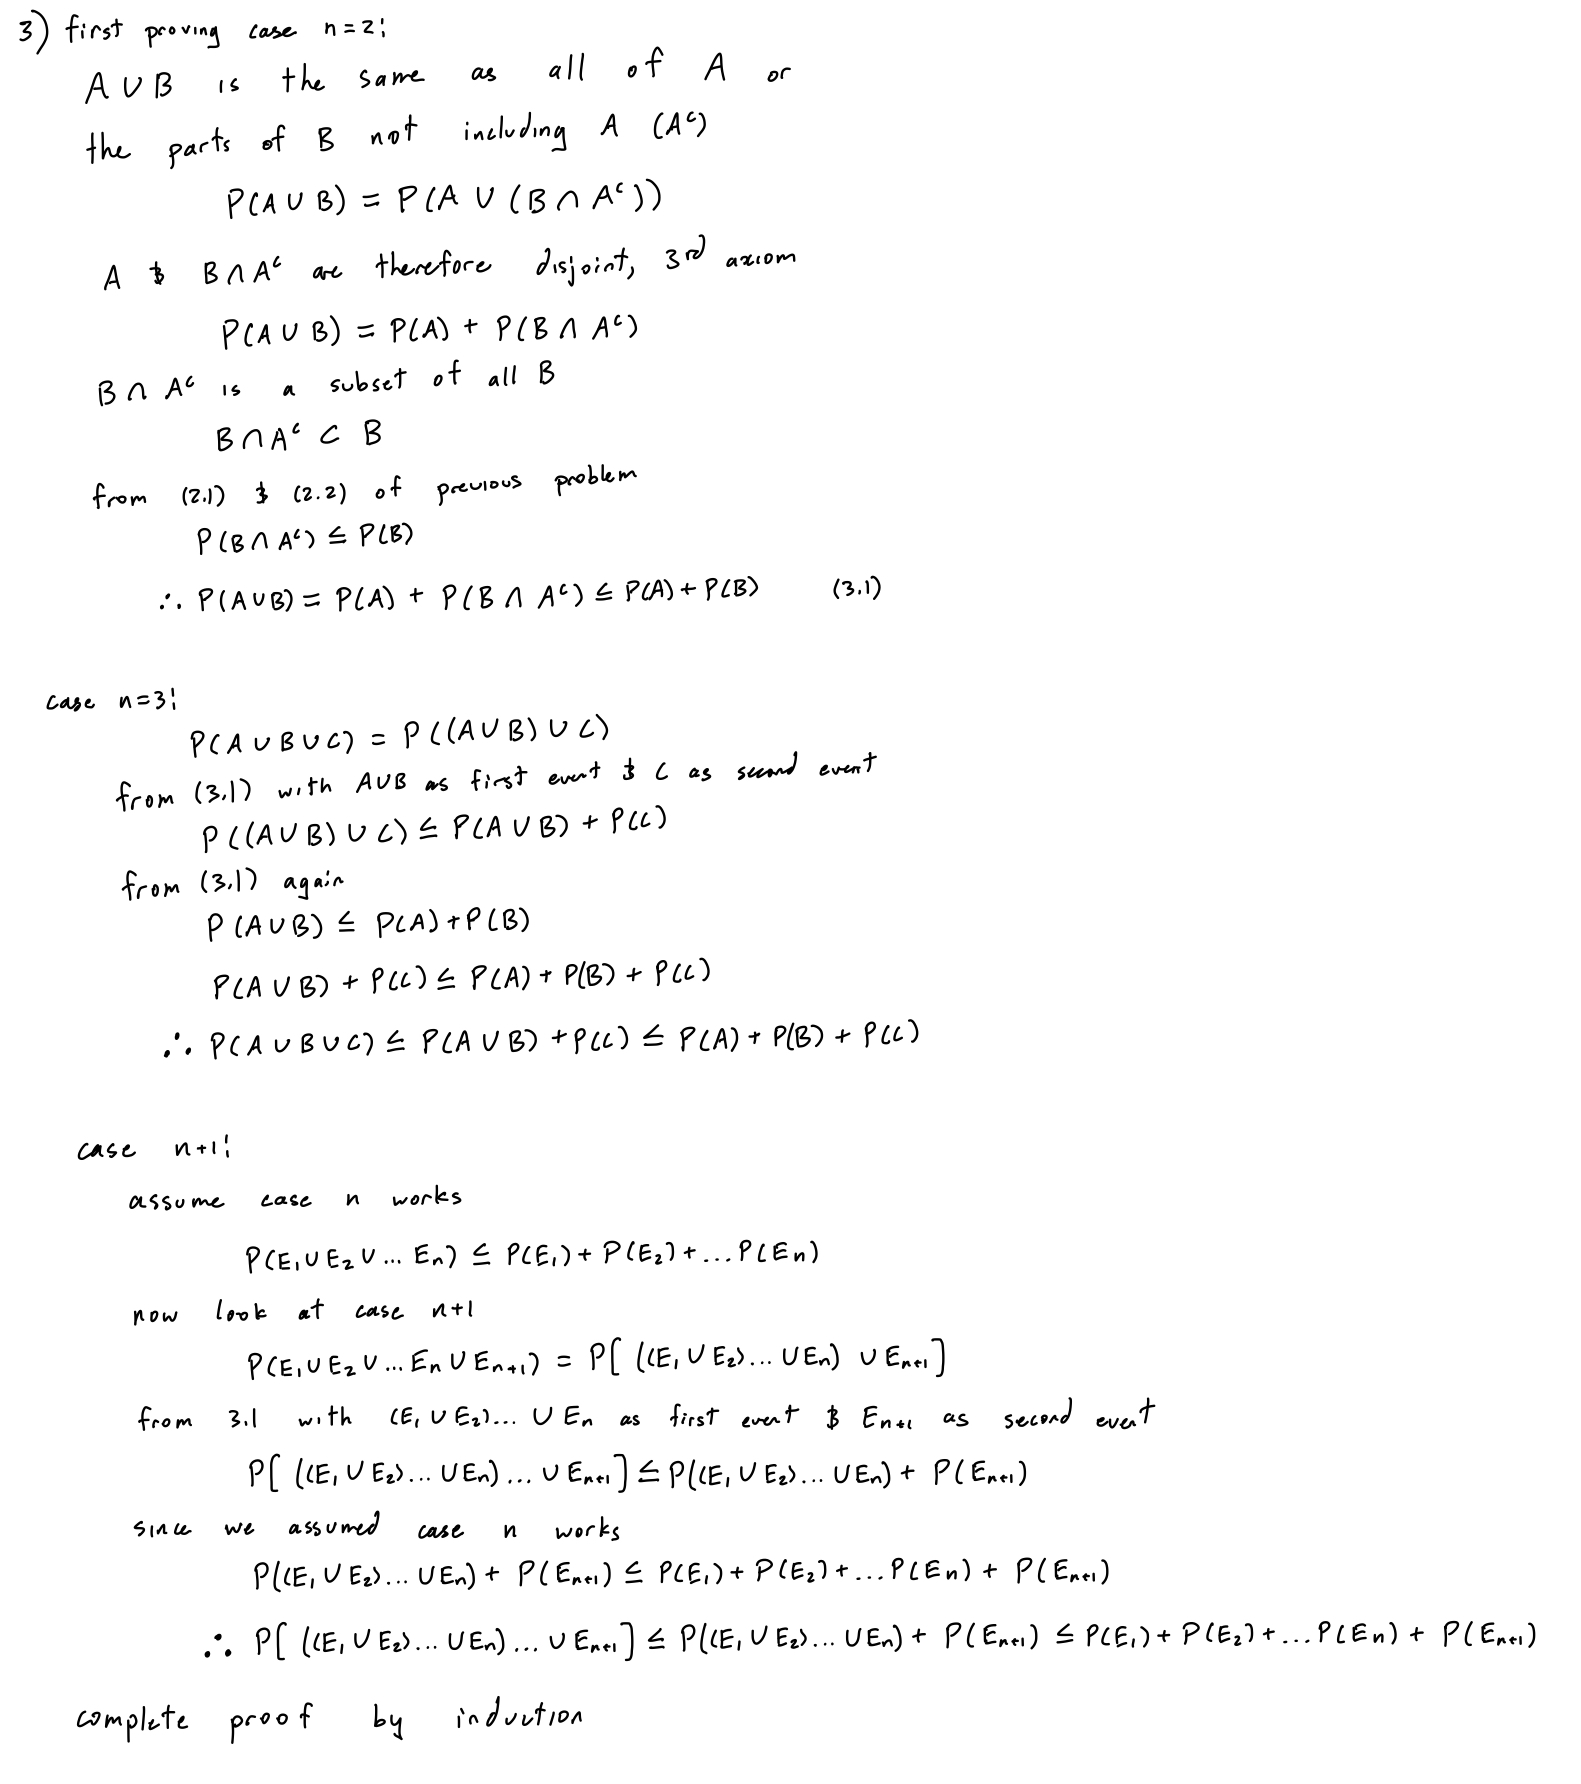 3) first proving case n=2:
A ∪ B is the same as all of A or
the parts of B not including A (Aᶜ)
P(A ∪ B) = P(A ∪ (B ∩ Aᶜ))
A & B ∩ Aᶜ are therefore disjoint, 3rd axiom
P(A ∪ B) = P(A) + P(B ∩ Aᶜ)
B ∩ Aᶜ is a subset of all B
B ∩ Aᶜ ⊂ B
from (2.1) & (2.2) of previous problem
P(B ∩ Aᶜ) ≤ P(B)
∴ P(A ∪ B) = P(A) + P(B ∩ Aᶜ) ≤ P(A) + P(B) (3.1)
case n=3:
P(A ∪ B ∪ C) = P((A ∪ B) ∪ C)
from (3.1) with A∪B as first event & C as second event
P((A ∪ B) ∪ C) ≤ P(A ∪ B) + P(C)
from (3.1) again
P(A ∪ B) ≤ P(A) + P(B)
P(A ∪ B) + P(C) ≤ P(A) + P(B) + P(C)
∴ P(A ∪ B ∪ C) ≤ P(A ∪ B) + P(C) ≤ P(A) + P(B) + P(C)
case n+1:
assume case n works
P(E₁ ∪ E₂ ∪ ... Eₙ) ≤ P(E₁) + P(E₂) + ... P(Eₙ)
now look at case n+1
P(E₁ ∪ E₂ ∪ ... Eₙ ∪ Eₙ₊₁) = P[ ((E₁ ∪ E₂)... ∪ Eₙ) ∪ Eₙ₊₁]
from 3.1 with (E₁ ∪ E₂)... ∪ Eₙ as first event & Eₙ₊₁ as second event
P[ ((E₁ ∪ E₂)... ∪ Eₙ)... ∪ Eₙ₊₁] ≤ P((E₁ ∪ E₂)... ∪ Eₙ) + P(Eₙ₊₁)
since we assumed case n works
P((E₁ ∪ E₂)... ∪ Eₙ) + P(Eₙ₊₁) ≤ P(E₁) + P(E₂) + ... P(Eₙ) + P(Eₙ₊₁)
∴ P[ ((E₁ ∪ E₂)... ∪ Eₙ)... ∪ Eₙ₊₁] ≤ P((E₁ ∪ E₂)... ∪ Eₙ) + P(Eₙ₊₁) ≤ P(E₁) + P(E₂) + ... P(Eₙ) + P(Eₙ₊₁)
complete proof by induction